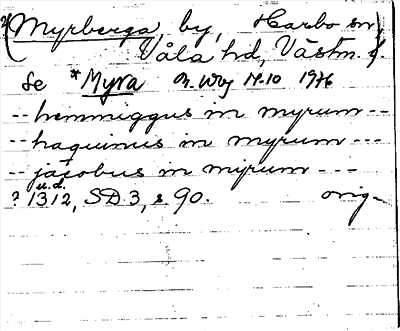 *(Myrberga, by, Harbo sn,
Våla hd, Västm. l.)
Se *Myra 14.10 1976
-- hemmiggus in myrum --
-- haquinus in myrum ---
-- jacobus in myrum ---
u.d.
? 1312, SD 3, s 90. orig-